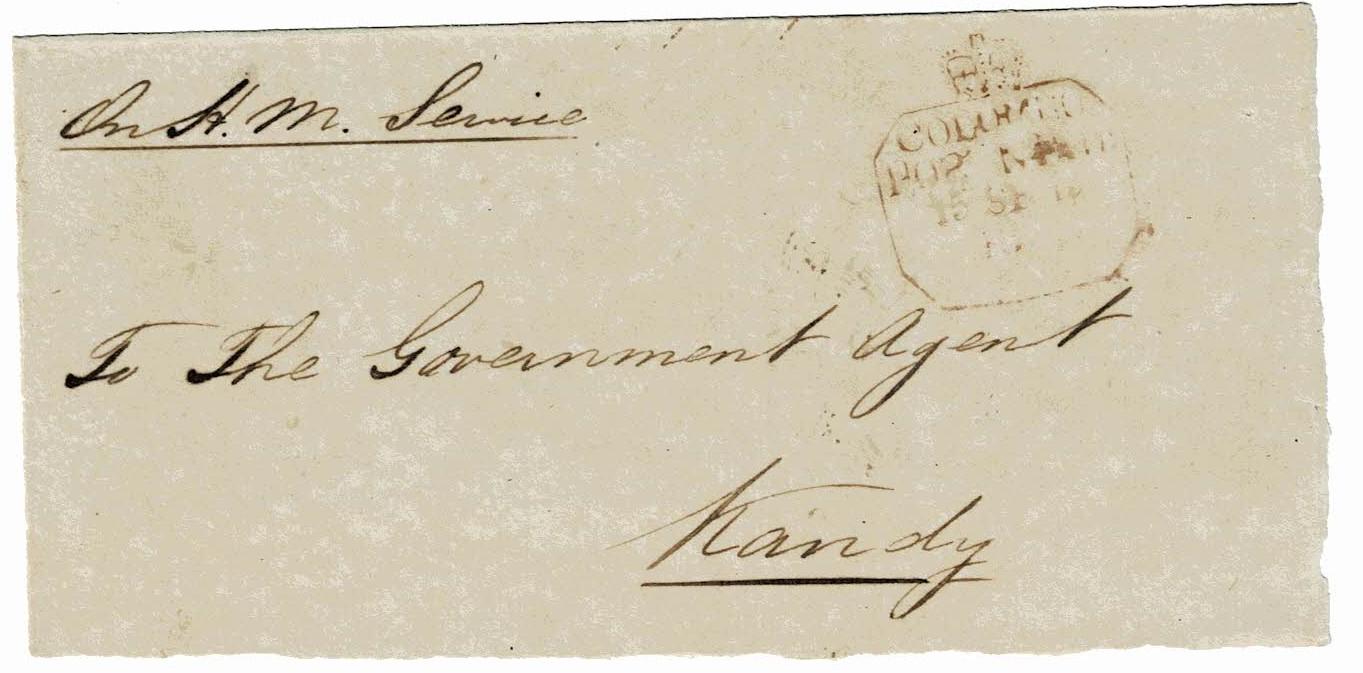 On H. M. Service
COLOMBO
POST
15 SE
To The Government Agent
Kandy